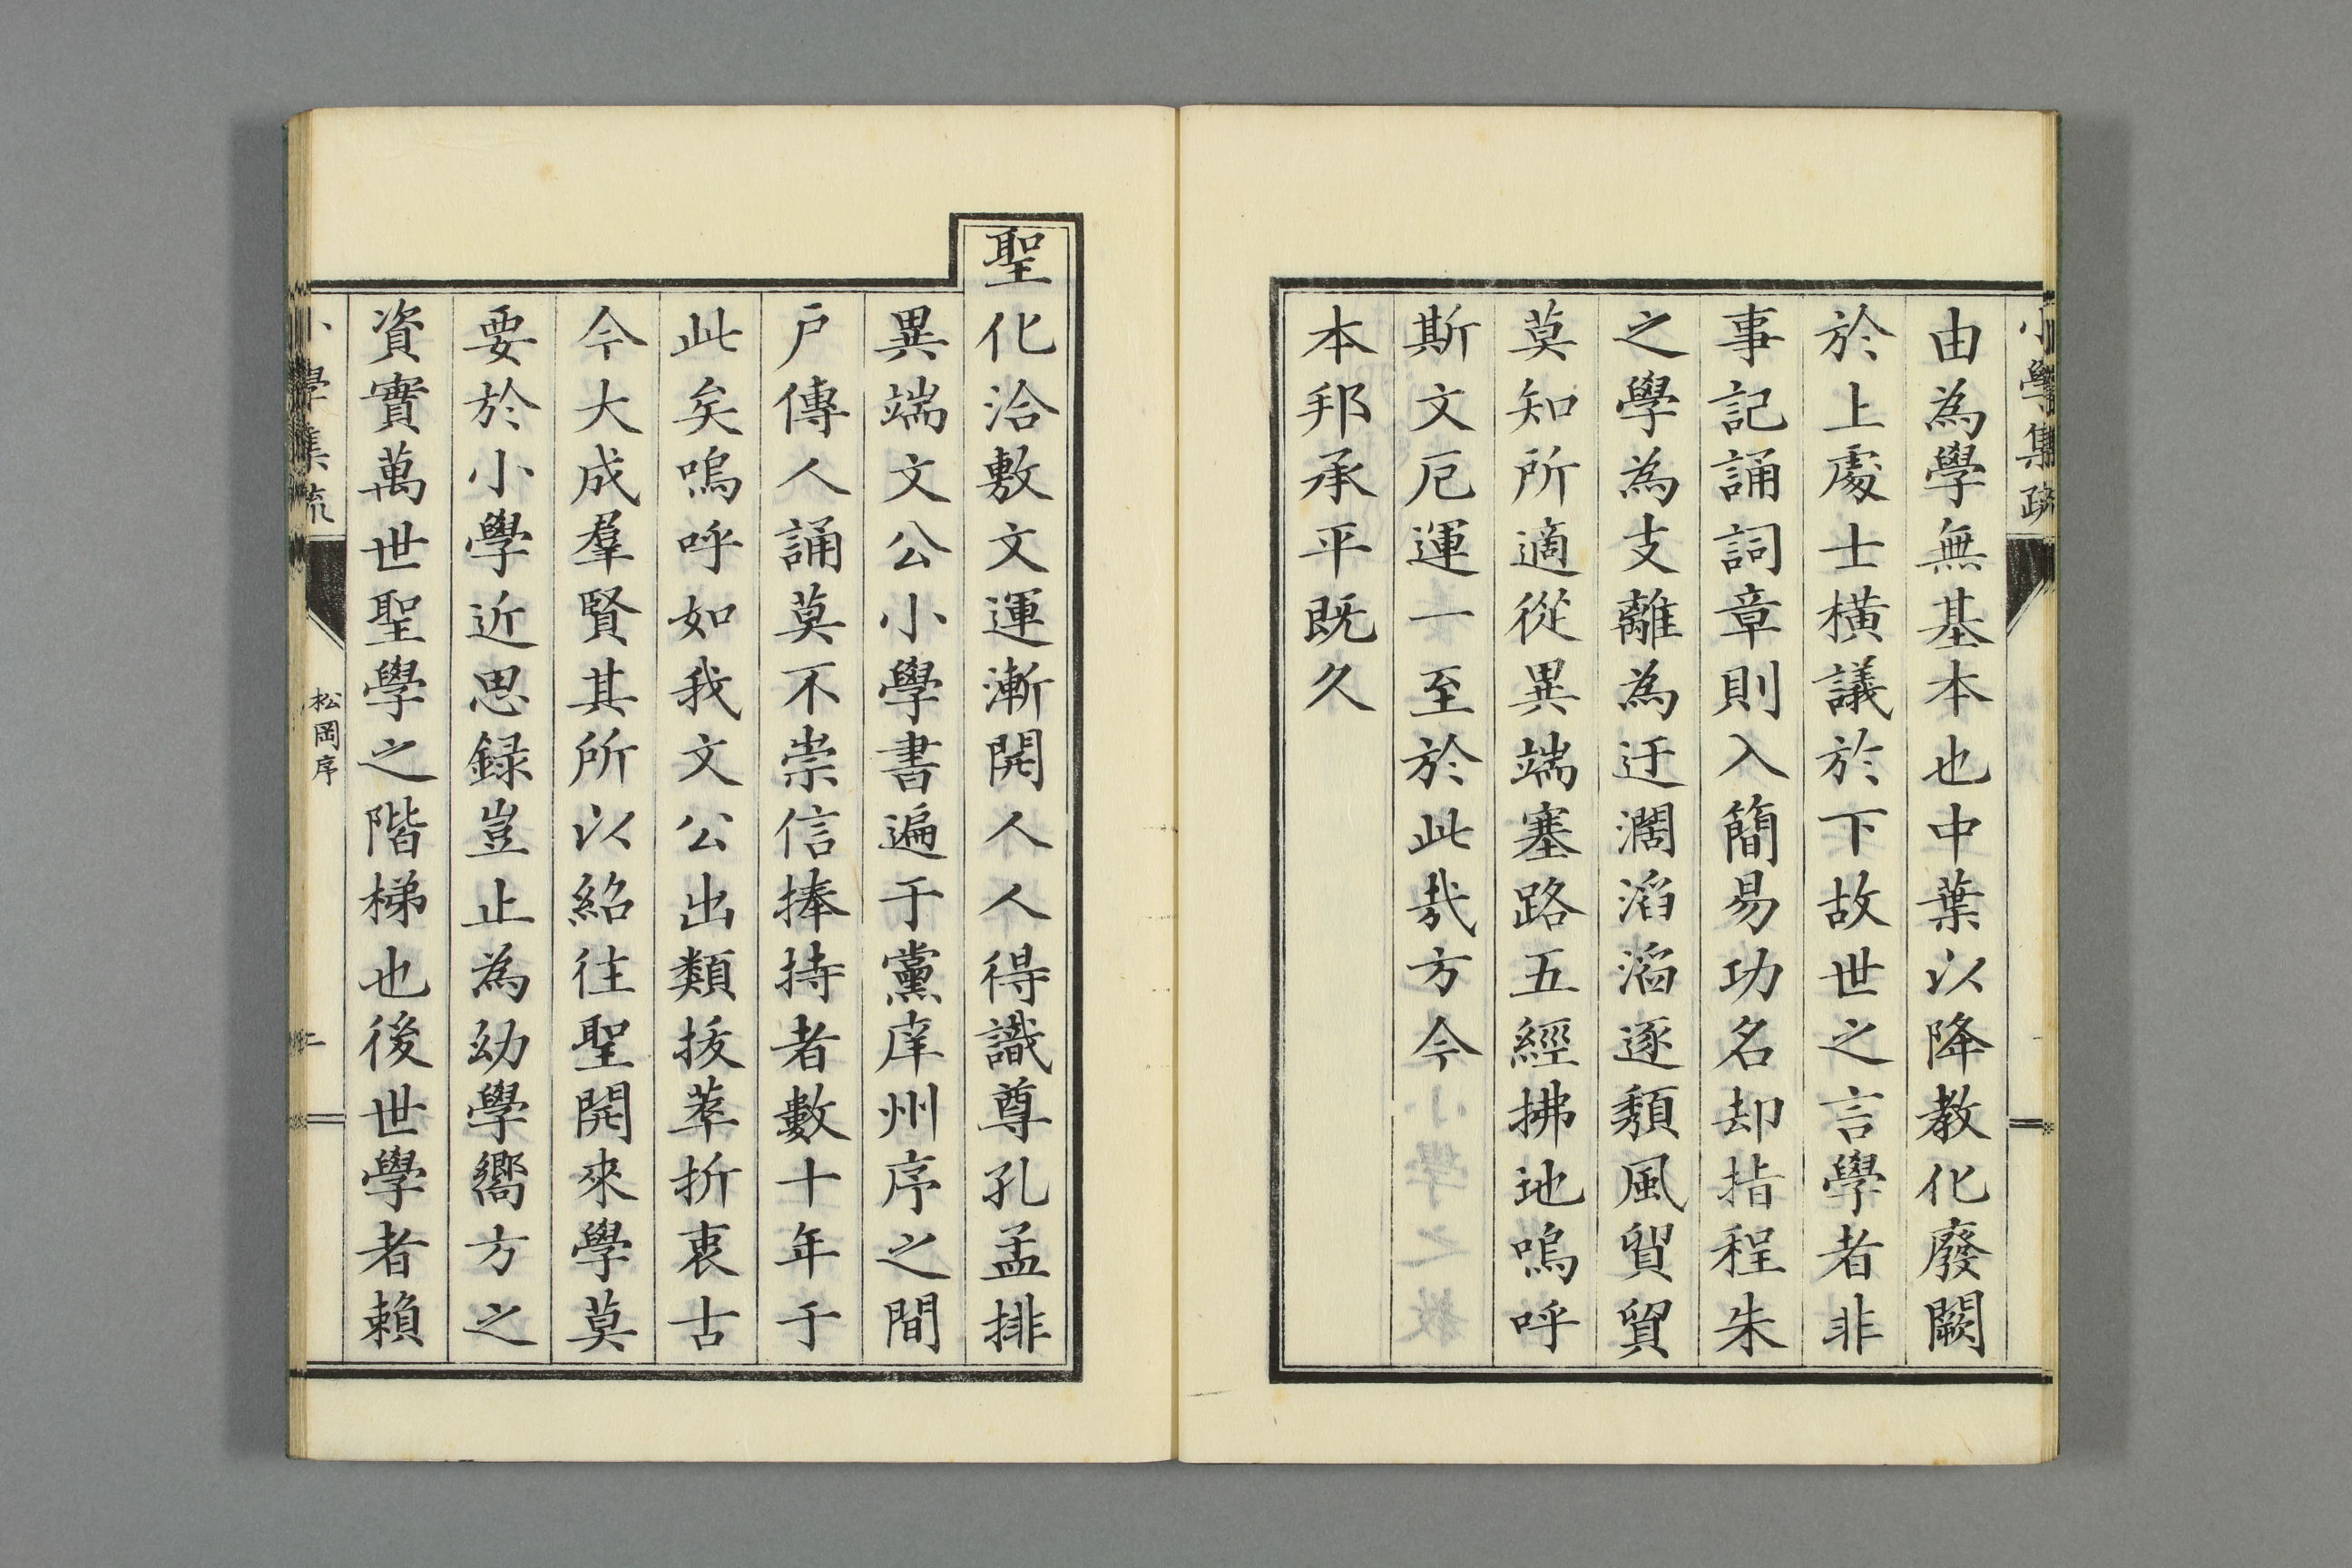 小學集疏
由為學無基本也中葉以降教化廢闕
於上處士橫議於下故世之言學者非
事記誦詞章則入簡易功名却指程朱
之學為支離為迂濶滔滔逐頹風貿貿
莫知所適從異端塞路五經拂地嗚呼
斯文厄運一至於此哉方今
本邦承平既久
聖化洽敷文運漸開人人得識尊孔孟排
異端文公小學書遍于黨庠州序之間
戶傳人誦莫不崇信捧持者數十年于
此矣嗚呼如我文公出類拔萃折衷古
今大成羣賢其所以紹往聖開來學莫
要於小學近思録豈止為幼學嚮方之
資實萬世聖學之階梯也後世學者賴
小學集疏
松岡序
二